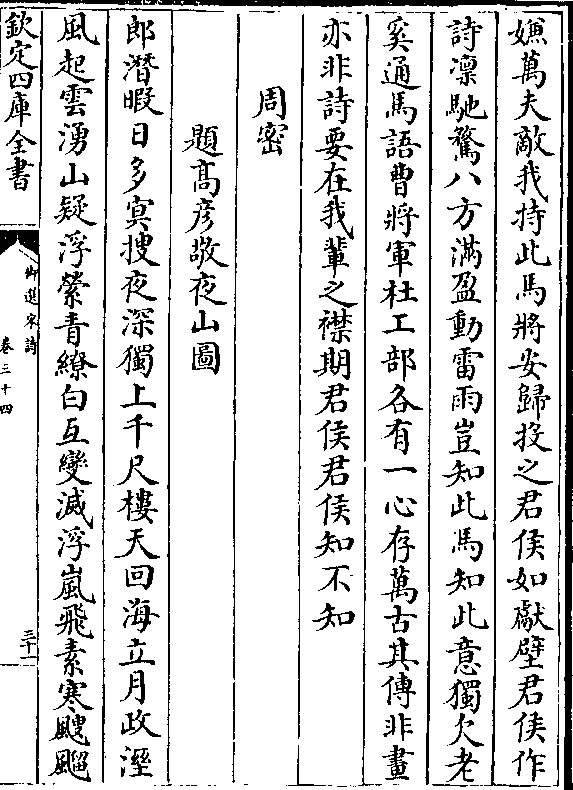 嫌萬夫敵我持此馬將安歸投之君侯如獻璧君侯作
詩凛馳騖八方滿盈動雷雨豈知此馬知此意獨欠老
奚通馬語曹將軍杜工部各有一心存萬古其傳非畫
亦非詩要在我輩之襟期君侯君侯知不知
周密
題髙彦敬夜山圖
郎潛暇日多冥搜夜深獨上千尺樓天回海立月政溼
風起雲湧山疑浮縈青繚白互變滅浮嵐飛素寒颼飀
欽定四庫全書
御選宋詩
卷三十四
三十一